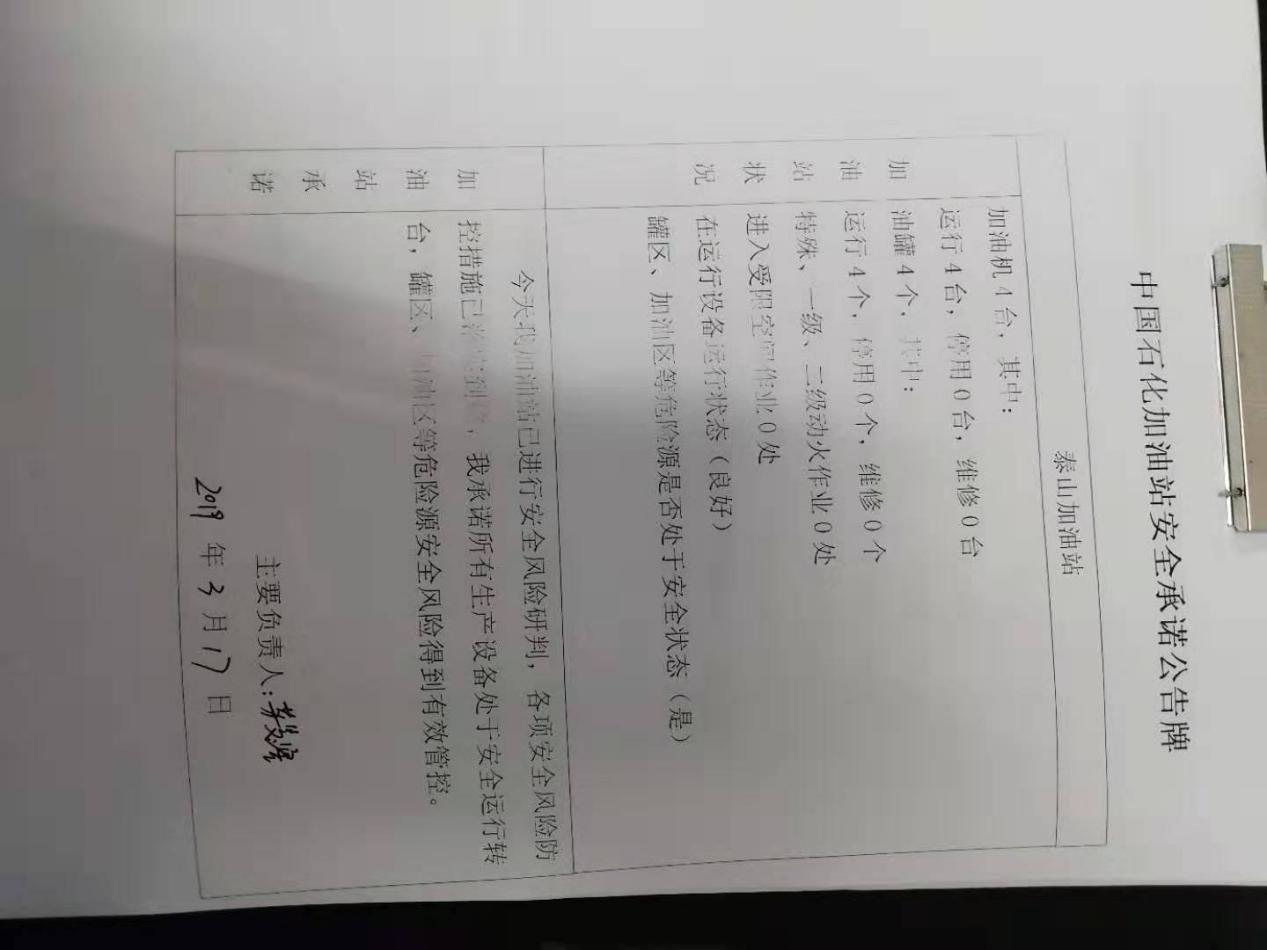 中国石化加油站安全承诺公告牌
泰山加油站
加油站状况
加油机4台，其中：
运行4台，停用0台，维修0台
油罐4个，其中：
运行4个，停用0个，维修0个
特殊、一级、二级动火作业0处
进入受限空间作业0处
在运行设备运行状态（良好）
罐区、加油区等危险源是否处于安全状态（是）
加油站承诺
今天我加油站已进行安全风险研判，各项安全风险防
控措施已落实到位，我承诺所有生产设备处于安全运行转
台，罐区、加油区等危险源安全风险得到有效管控。
主要负责人：
2019年3月17日